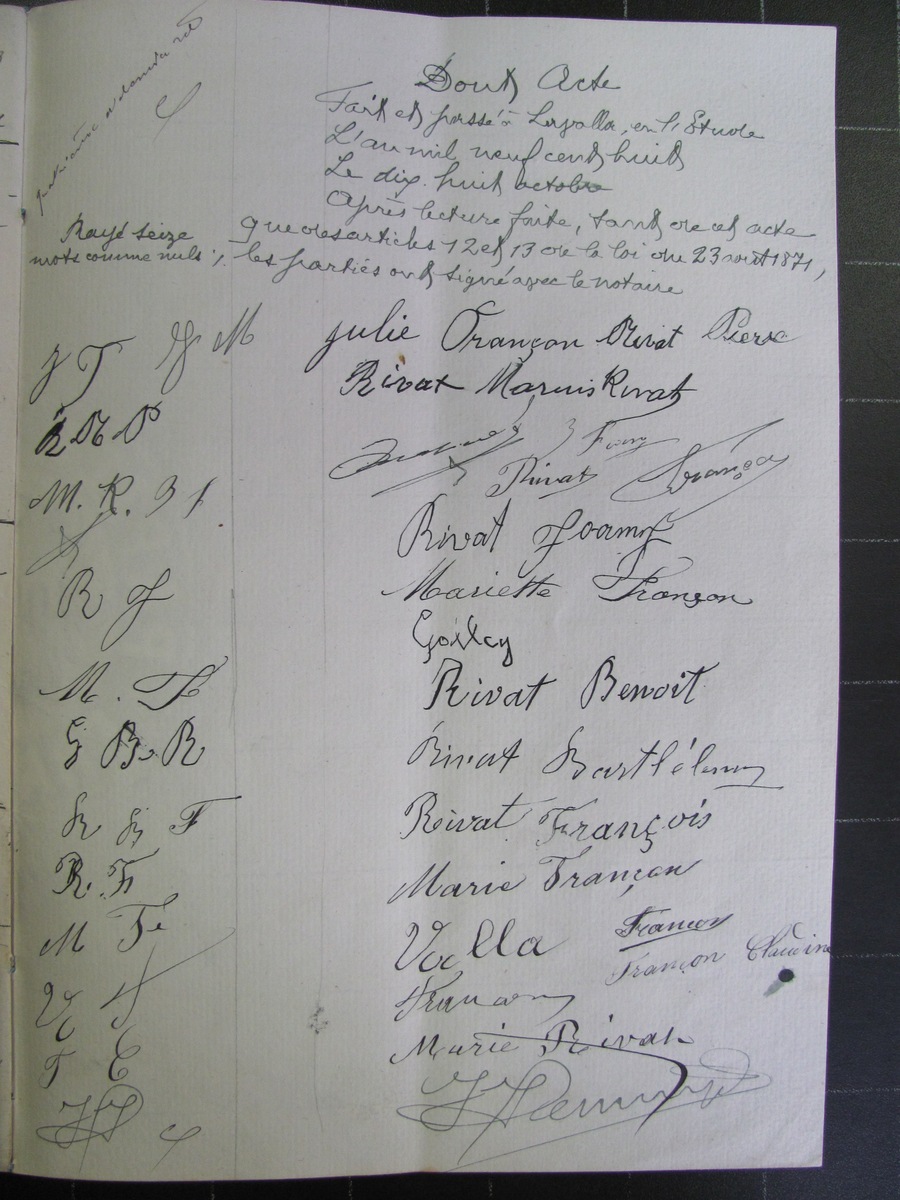 Dont Acte
Fait et passé à Lavalla, en l'Etude
L'an mil neuf cent huit
Le dix huit octobre
Après lecture faite, tant de cet acte
que des articles 12 et 13 de la loi du 23 août 1871,
les parties ont signé avec le notaire
Rayé seize
mots comme nuls %
J F M
Julie Françon Rivat Pierre
R R P
Rivat Marius Rivat
M. R.
Rivat Françon
Rivat Joamy
R J
Mariette Françon
M. F
Rivat Benoît
G B. R
Rivat Bartlélemy
R B F
Rivat François
R. F
Marie Françon
M F
Françon
Françon Claudine
F C
Marie Rivat